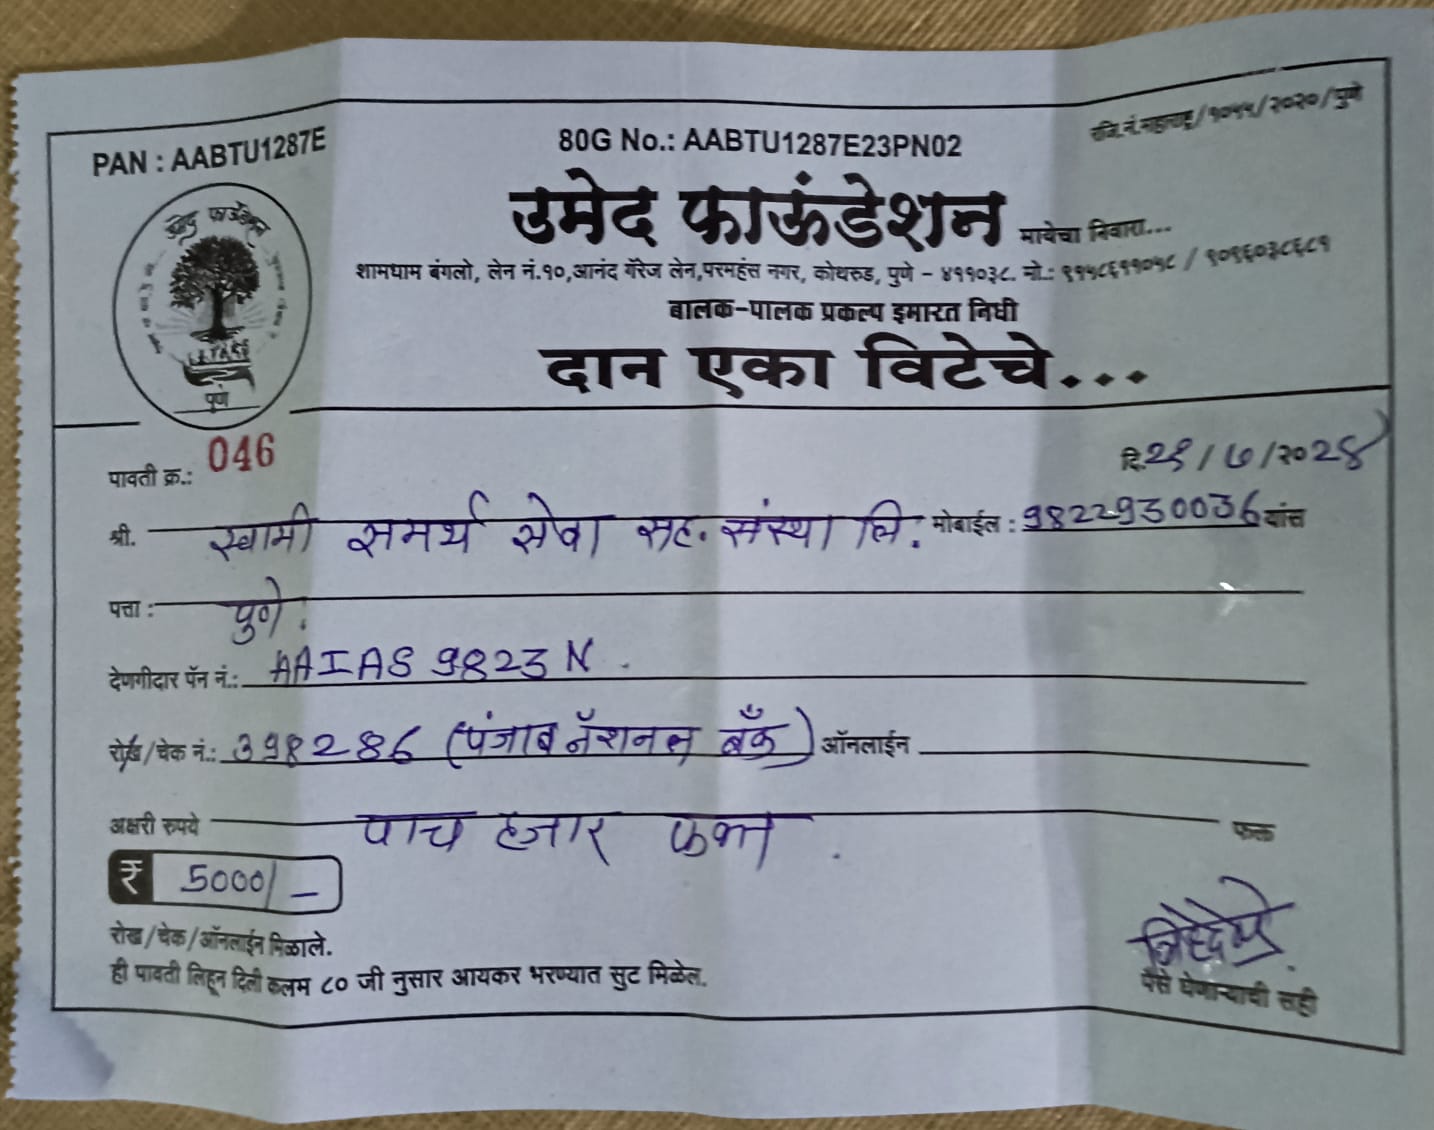 PAN : AABTU1287E
80G No.: AABTU1287E23PN02
रजि.नं.महाराष्ट्र/१०५५/२०२०/पुणे
उमेद फाऊंडेशन मायेचा निवारा...
शामधाम बंगलो, लेन नं.१०,आनंद गॅरेज लेन,परमहंस नगर, कोथरुड, पुणे - ४११०३८. मो.: ९१५८६११०५८ / ९०९६०३८६८१
बालक-पालक प्रकल्प इमारत निधी
दान एका विटेचे...
उमेद फाऊंडेशन
पुणे
पावती क्र.: 046
दि.२१/७/२०२४
श्री. स्वामी समर्थ सेवा सह. संस्था लि. मोबाईल : 9822930036 यांस
पत्ता : पुणे.
देणगीदार पॅन नं.: AAIAS9823N.
रोख/चेक नं.: 398286 (पंजाब नॅशनल बँक) ऑनलाईन
अक्षरी रुपये पाच हजार फक्त. फक्त
₹ 5000/-
रोख/चेक/ऑनलाईन मिळाले.
ही पावती लिहून दिली कलम ८० जी नुसार आयकर भरण्यात सुट मिळेल.
पैसे घेणाऱ्याची सही